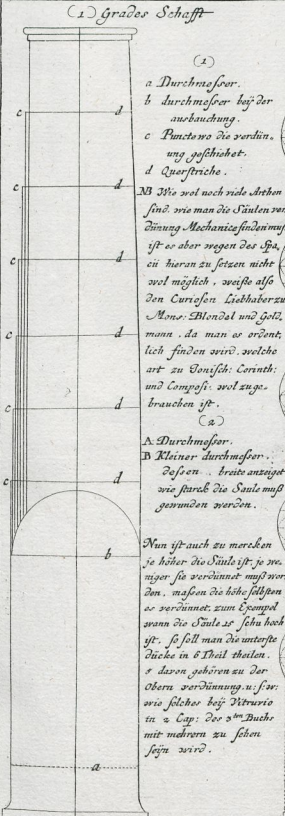 (1) Grades Schafft
(1)
a Durchmeſſer.
b durchmeſſer beÿ der
ausbauchung.
c Puncte wo die verdün„
ung geſchiehet.
d Querſtriche.
NB Wie wol noch viele Arthen
ſind. wie man die Säulen ver
dünung Mechanice finden muſ
iſt es aber wegen des Spa„
cii hieran zu ſetzen nicht
wol möglich, weiſte alſo
den Curioſen Liebhaber zu
Mons: Blondel und Gold„
mann. da man es ordent„
lich finden wird. welche
art zu Jonisch: Corinth:
und Compoſi: wol zuge„
brauchen iſt.
(2)
A. Durchmeſſer.
B Kleiner durchmeſſer.
deſſen breite anzeiget
wie ſtarck die Saule muß
gewunden werden.
Nun iſt auch zu mercken
je höher die Säule iſt, je we„
niger ſie verdünnet muß wor
den, maſſen die höhe ſelbſten
es verdünnet, zum Exempel
wann die Säule 15 ſchu hoch
iſt, ſo ſoll man die unterſte
dücke in 6 Theil theilen.
5 davon gehören zu der
Obern verdünnung. u: ſ: w:
wie ſolches beÿ Vitruvio
in 2 Cap: des 3ten Buchs
mit mehrern zu ſehen
ſeÿn wird.
c d
c d
c d
c d
c d
c d
b
a